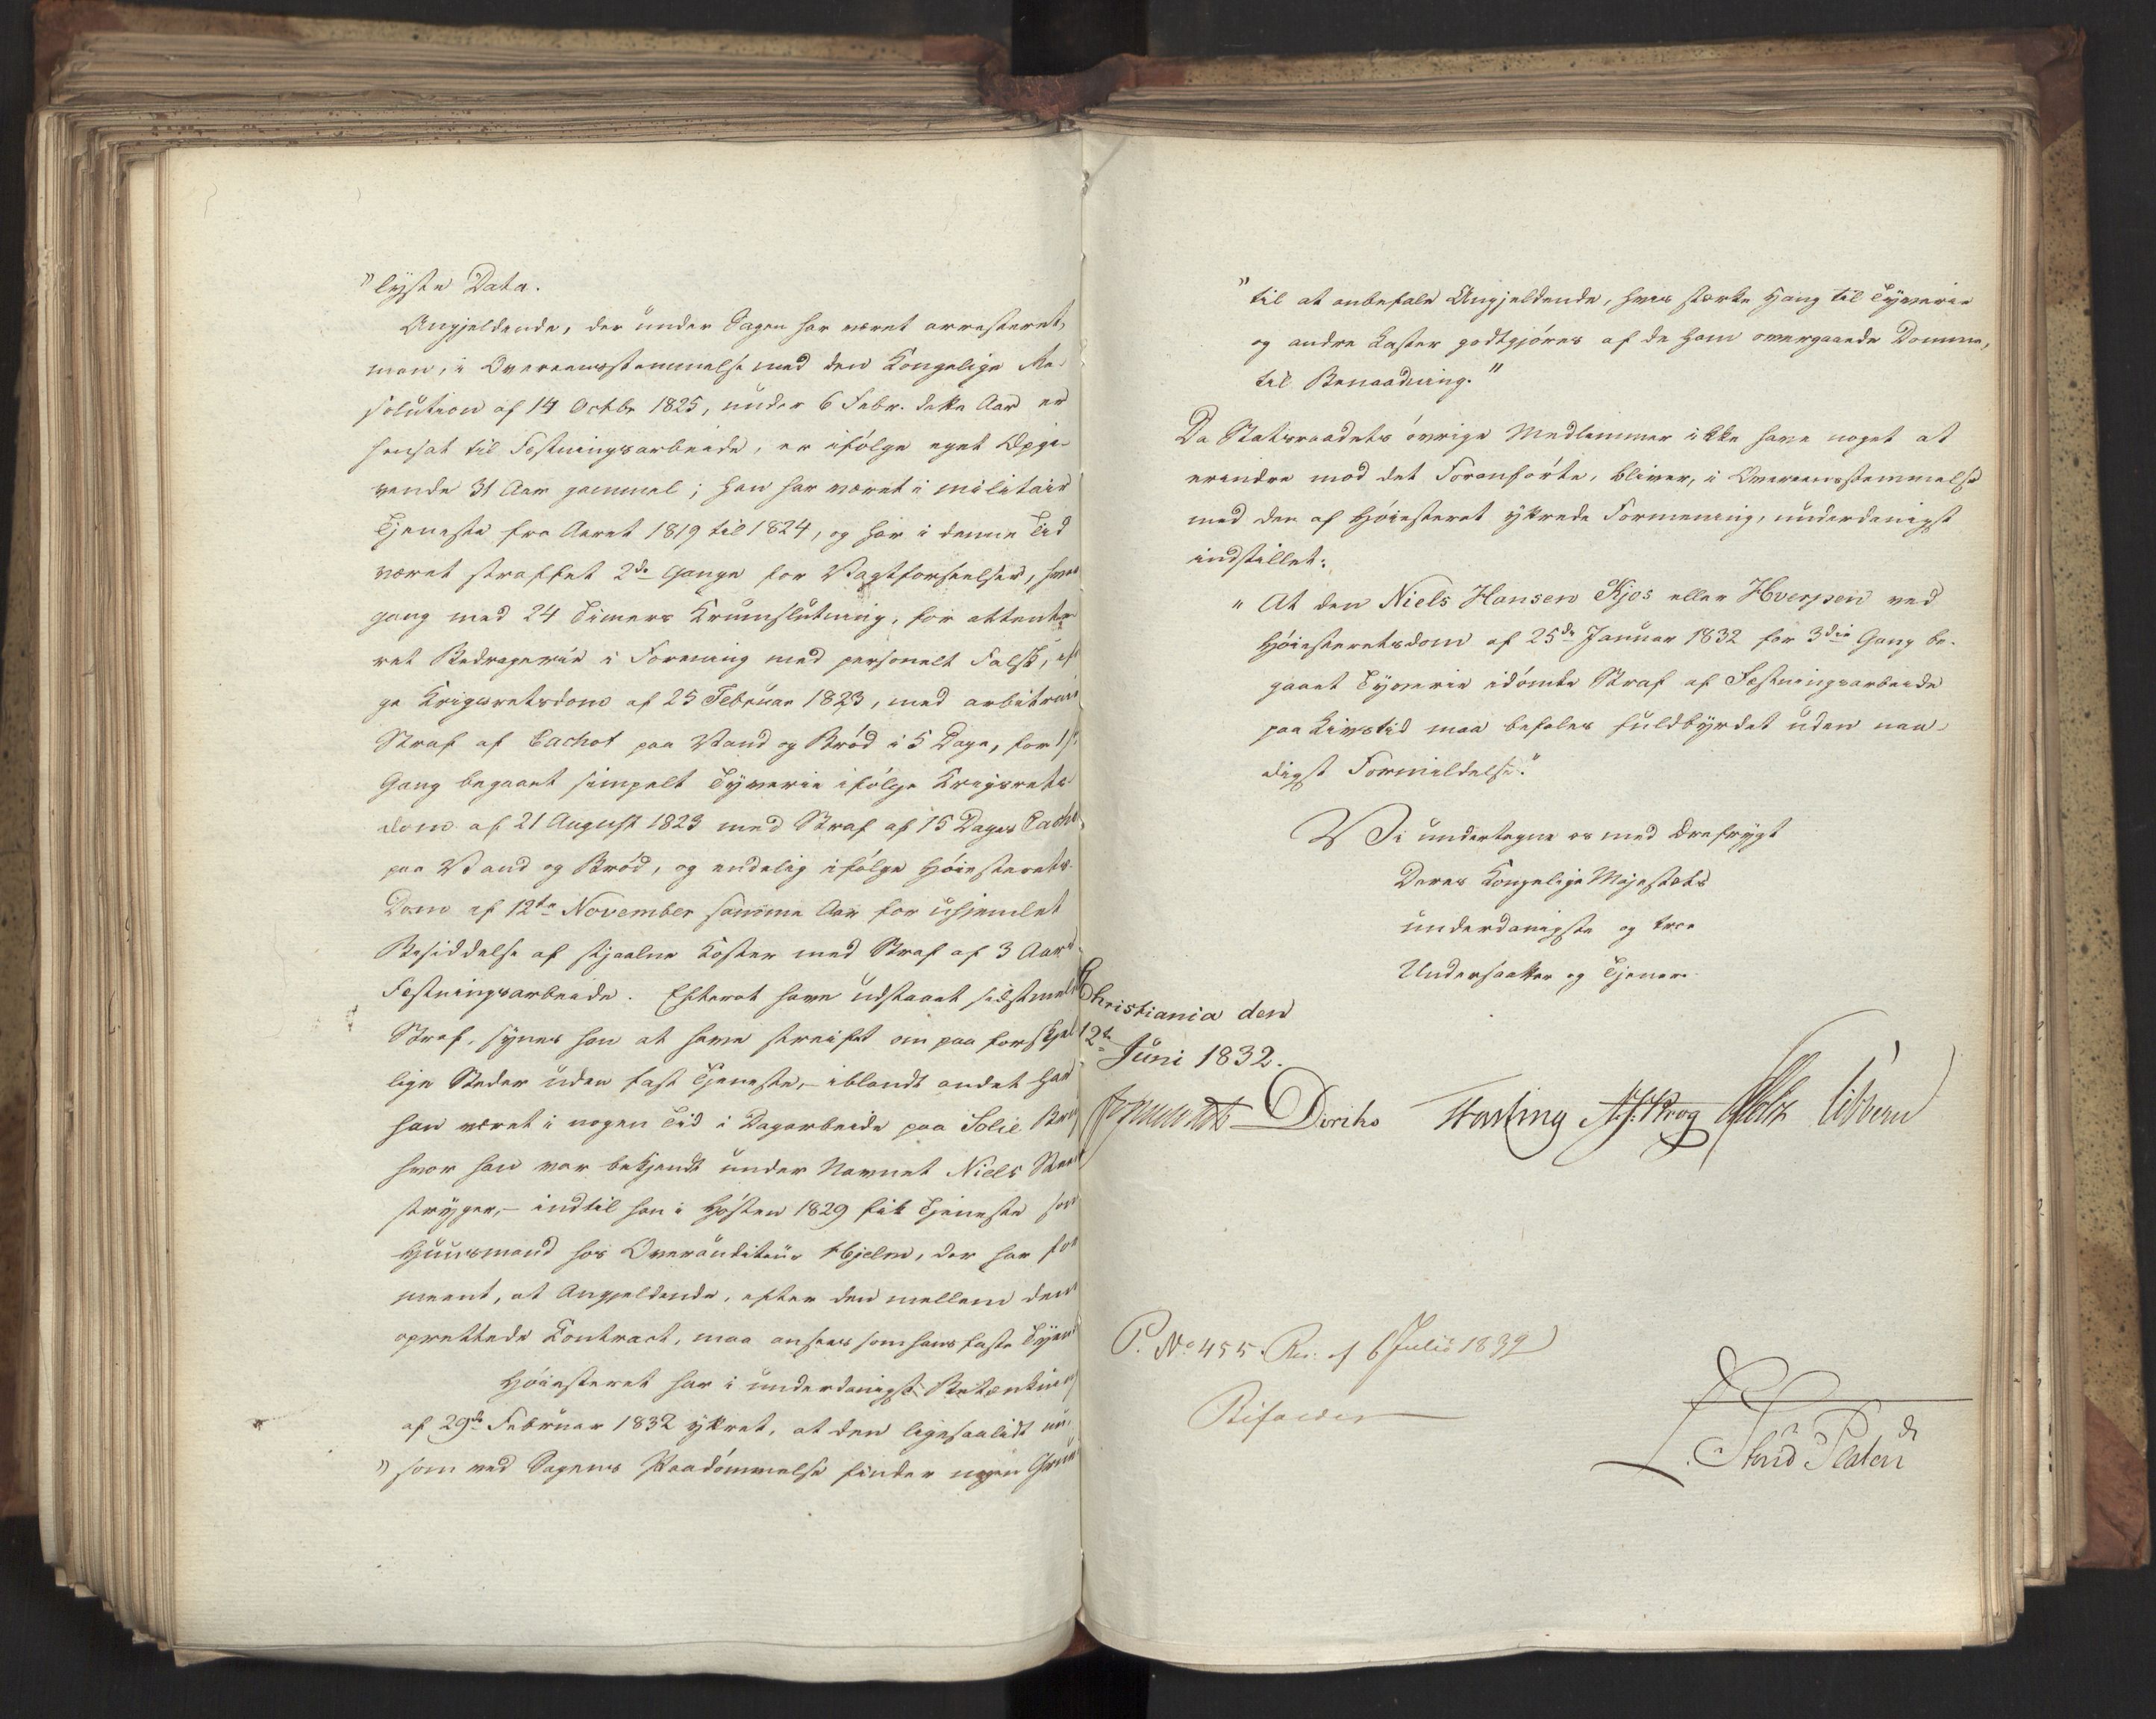 "lyste Data.
Angjeldende, der under Sagen har været arresteret,
men, i Overeensstemmelse med den Kongelige Re-
solution af 14 Octbr 1825, under 6 Febr. dette Aar er
hensat til Festningsarbeide, er ifølge eget Opgi-
vende 31 Aar gammel; han har været i militair
Tjeneste fra Aaret 1819 til 1824, og har i denne Tid
været straffet 2de Gange for Vagtforseelser, hver
gang med 24 Timers Krumslutning, for attente-
ret Bedragerie i Forening med personelt Falsk,
ge Krigsretsdom af 25 Februar 1823, med arbitrair
Straf af Cachot paa Vand og Brød i 5 Dage, for 1ste
Gang begaaet simpelt Tyverie ifølge Krigsrets-
dom af 21 August 1823 med Straf af 15 Dages Cachot
paa Vand og Brød, og endelig ifølge Høiesterets-
Dom af 12te November samme Aar for uhjemlet
Besiddelse af stjaalne Koster med Straf af 3 Aars
Festningsarbeide. Efterat have udstaaet sidstmeldte
Straf, synes han at have streifet om paa forskjel-
lige Steder uden fast Tjeneste, – iblandt andet har
han været i nogen Tid i Dagarbeide paa Solie Brug
hvor han var bekjendt under Navnet Niels
stryger, – indtil han i Høsten 1829 fik Tjeneste som
Huusmand hos Overauditeur Hjelm, der har for-
meent, at Angjeldende, efter den mellem dem
oprettede Contract, maa ansees som hans faste Tyende
Høiesteret har i underdanigst Betænkning
af 29de Februar 1832 yttret, at den ligesaalidt nu,
"som ved Sagens Paadømmelse finder nogen Grund
"til at anbefale Angjeldende, hvis stærke Hang til Tyverie
og andre Laster godtgjøres af de ham overgaaede Domme,
til Benaadning."
Da Statsraadets øvrige Medlemmer ikke have noget at
erindre mod det Foranførte, bliver, i Overeensstemmelse
med den af Høiesteret yttrede Formening, underdanigst
indstillet:
"At den Niels Hansen Kjos eller Hverpen ved
Høiesteretsdom af 25de Januar 1832 for 3die Gang be-
gaaet Tyverie idømte Straf af Festningsarbeide
paa Livstid maa befales fuldbyrdet uden naa-
digst Formildelse."
Vi undertegne os med Ærefrygt
Deres Kongelige Majestæts
underdanigste og troe
Undersaatter og Tjenere
Christiania den
12te Juni 1832.
Diriks Fasting Krog Holst Vibe
P. No 455. Res. af 6 Julii 1832
Bifaldes